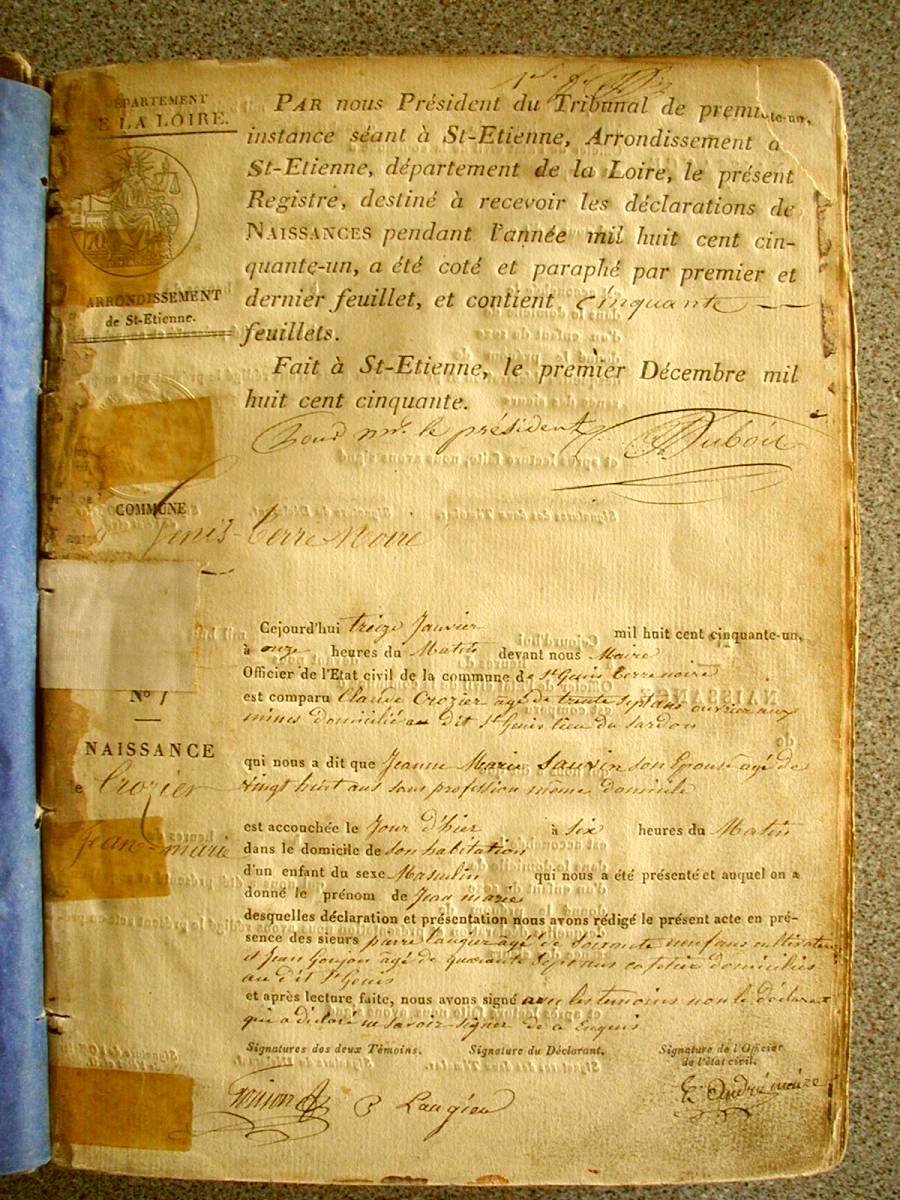 DÉPARTEMENT
DE LA LOIRE.
ARRONDISSEMENT
de St-Etienne.
PAR nous Président du Tribunal de premi
instance séant à St-Etienne, Arrondissement d
St-Etienne, département de la Loire, le présent
Registre, destiné à recevoir les déclarations de
NAISSANCES pendant l'année mil huit cent cin-
quante-un, a été coté et paraphé par premier et
dernier feuillet, et contient cinquante
feuillets.
Fait à St-Etienne, le premier Décembre mil
huit cent cinquante.
Pour mr. le président Dubois
COMMUNE
Genis-Terre Noire
Cejourd'hui treize Janvier mil huit cent cinquante-un,
à onze heures du Matin devant nous Maire
Officier de l'Etat civil de la commune de St Genis terrenoire
est comparu Claude Crozier agé de trente sept ans ouvrier aux
mines domicilié au dit St Genis lieu du Sardon
qui nous a dit que Jeanne Marie Sauvin son Epouse agé de
vingt huit ans sans profession même domicile
est accouchée le Jour d'hier à six heures du Matin
dans le domicile de son habitation
d'un enfant du sexe Masculin qui nous a été présenté et auquel on a
donné le prénom de Jean marie
desquelles déclaration et présentation nous avons rédigé le présent acte en pré-
sence des sieurs pierre Laugier agé de soixante neuf ans cultivateur
et Jean Goujon agé de quarante sept ans cafetier domiciliés
au dit St Genis
et après lecture faite, nous avons signé avec les temoins non le déclarant
qui a déclaré ne savoir signer de ce Enquis
Signatures des deux Témoins. Signature du Déclarant. Signature de l'Officier
de l'état civil.
Goujon P Laugier André maire
No 1
NAISSANCE
de Crozier
Jean-marie